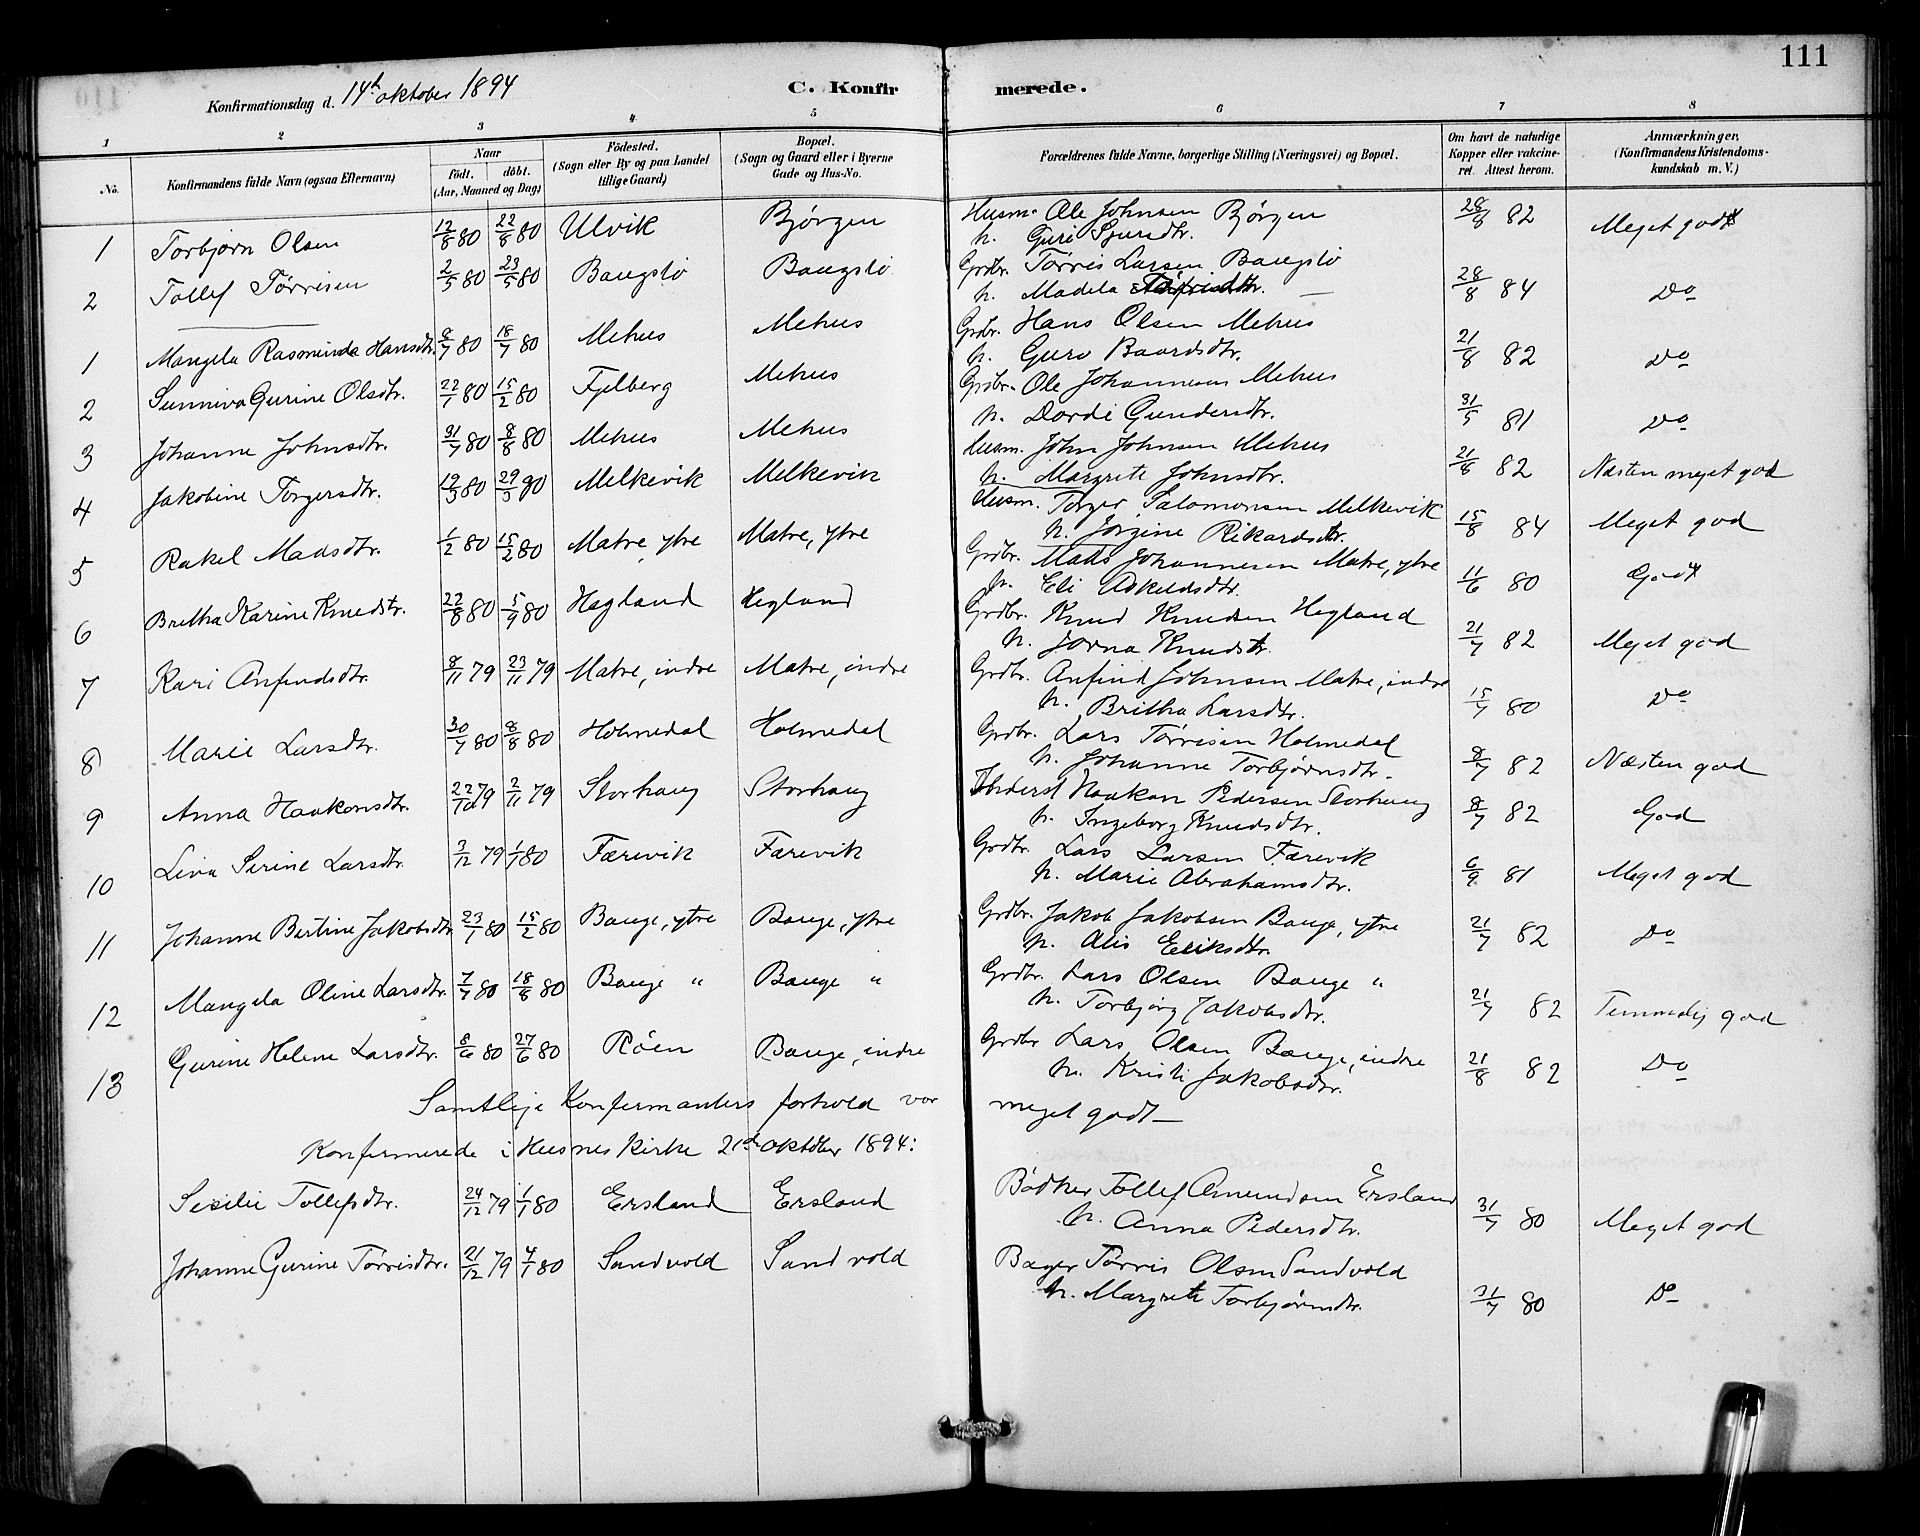 111
Konfirmationsdag d. 14de oktober 1894 C. Konfirmerede.
1 2 3 4 5 6 7 8
No. Konfirmandens fulde Navn (ogsaa Efternavn) Naar født. døbt. (Aar, Maaned og Dag) Fødested. (Sogn eller By og paa Landet tillige Gaard) Bopæl. (Sogn og Gaard eller i Byerne Gade og Hus-No. Forældrenes fulde Navne, borgerlige Stilling (Næringsvei) og Bopæl. Om havt de naturlige Kopper eller vakcineret. Attest herom. Anmærkninger. (Konfirmandens Kristendomskundskab m. V.)
1 Torbjørn Olsen 12/8 80 22/8 80 Ulvik Bjørgen Husm. Ole Johnsen Bjørgen 82 Meget godt
h. Guri Sjursdtr.
2 Tollef Tørrisen 2/5 80 23/5 80 Baugstø Baugstø Grdbr. Tørris Larsen Baugstø 28/8 84 Do
h. Madela
1 Mangela Rasminda Hansdtr. 8/7 80 18/7 80 Mehus Mehus Grdbr. Hans Olsen Mehus 21/8 82 Do
h. Guro Baardsdtr.
2 Sunniva Gurine Olsdtr. 22/1 80 15/2 80 Fjelberg Mehus Grdbr. Ole Johannesen Mehus 31/5 81 Do
h. Dordi Gundersdtr.
3 Johanne Johnsdtr. 31/7 80 8/8 80 Mehus Mehus Husm. John Johnsen Mehus 21/8 82 Næsten meget god
h. Margrete Johnsdtr.
4 Jakobine Torgersdtr. 19/3 80 29/3 90 Melkevik Melkevik Husm. Torger Salomonsen Melkevik 15/8 84 Meget god
h. Jørgine Rikardsdtr.
5 Rakel Madsdtr. 1/2 80 15/2 80 Matre, ytre Matre, ytre Grdbr. Mads Johannesen Matre, ytre 11/6 80 Godt
h. Eli Askeldsdtr.
6 Britha Karine Knudstr. 22/8 80 5/9 80 Hegland Hegland Grdbr. Knud Knudsen Hegland 21/7 82 Meget god
h. Jorna Knudstr.
7 Kari Anfindsdtr. 8/11 79 23/11 79 Matre, indre Matre, indre Grdbr. Anfind Johnsen Matre, indre 15/7 80 Do
h. Britha Larsdtr.
8 Marie Larsdtr. 30/7 80 8/8 80 Holmedal Holmedal Grdbr. Lars Tørrisen Holmedal 8/7 82 Næsten god
h. Johanne Torbjørnsdtr.
9 Anna Haakonsdtr. 22/10 79 2/11 79 Storhaug Storhaug Inderst Haakon Pedersen Storhaug 8/7 82 God
h. Ingeborg Knudsdtr.
10 Lina Serine Larsdtr. 3/12 79 1/1 80 Færevik Færevik Grdbr. Lars Larsen Færevik 6/9 81 Meget god
h. Marie Abrahamsdtr.
11 Johanne Bertine Jakobsdtr. 23/1 80 15/2 80 Bauge, ytre Bauge, ytre Grdbr. Jakob Jakobsen Bauge, ytre 21/7 82 Do
h. Alis Eriksdtr.
12 Mangela Oline Larsdtr. 7/7 80 18/8 80 Bauge " Bauge " Grdbr. Lars Olsen Bauge " 21/7 82 Temmelig god
h. Torbjørg Jakobsdtr.
13 Gurine Helene Larsdtr. 8/6 80 27/6 80 Røen Bauge, indre Grdbr Lars Olsen Bauge, indre 21/8 82 Do
h. Kristi Jakobsdtr.
Samtlige Konfirmanters forhold var meget godt —
Konfirmerede i Husnes Kirke 21de oktober 1894:
Sesilie Tollefsdtr. 24/12 79 1/1 80 Ersland Ersland Bødker Tollef Amundsen Ersland 31/7 80 Meget god
h. Anna Pedersdtr.
Johanne Gurine Tørrisdtr. 21/12 79 4/1 80 Sandvold Sandvold Bager Tørris Olsen Sandvold 31/7 80 Do
h. Margrete Torbjørnsdtr.